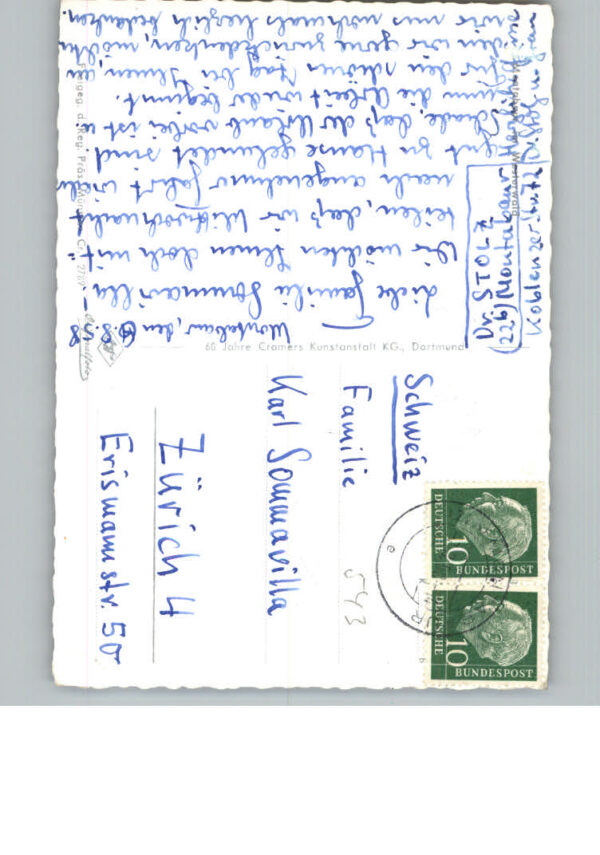 Montabaur, den 6.8.58
Liebe Familie Sommavilla,
Wir möchten Ihnen doch mit-
teilen, daß wir
nach angenehmer Fahrt wieder
gut zu Hause gelandet sind
Schade, daß der Urlaub vorbei ist u.
nun die Arbeit wieder beginnt.
Für den schönen Tag bei Ihnen, an
den wir gerne zurückdenken, möchten
wir uns nochmals herzlich bedanken
Dr. STOLZ
(22b) Montabaur
Koblenzer Str.
Westerwald
Freigeg. d. Reg. Präs.
60 Jahre Cramers Kunstanstalt KG., Dortmund
Schweiz
Familie
Karl Sommavilla
Zürich 4
Erismannstr. 50
543
DEUTSCHE
10
BUNDESPOST
DEUTSCHE
10
BUNDESPOST